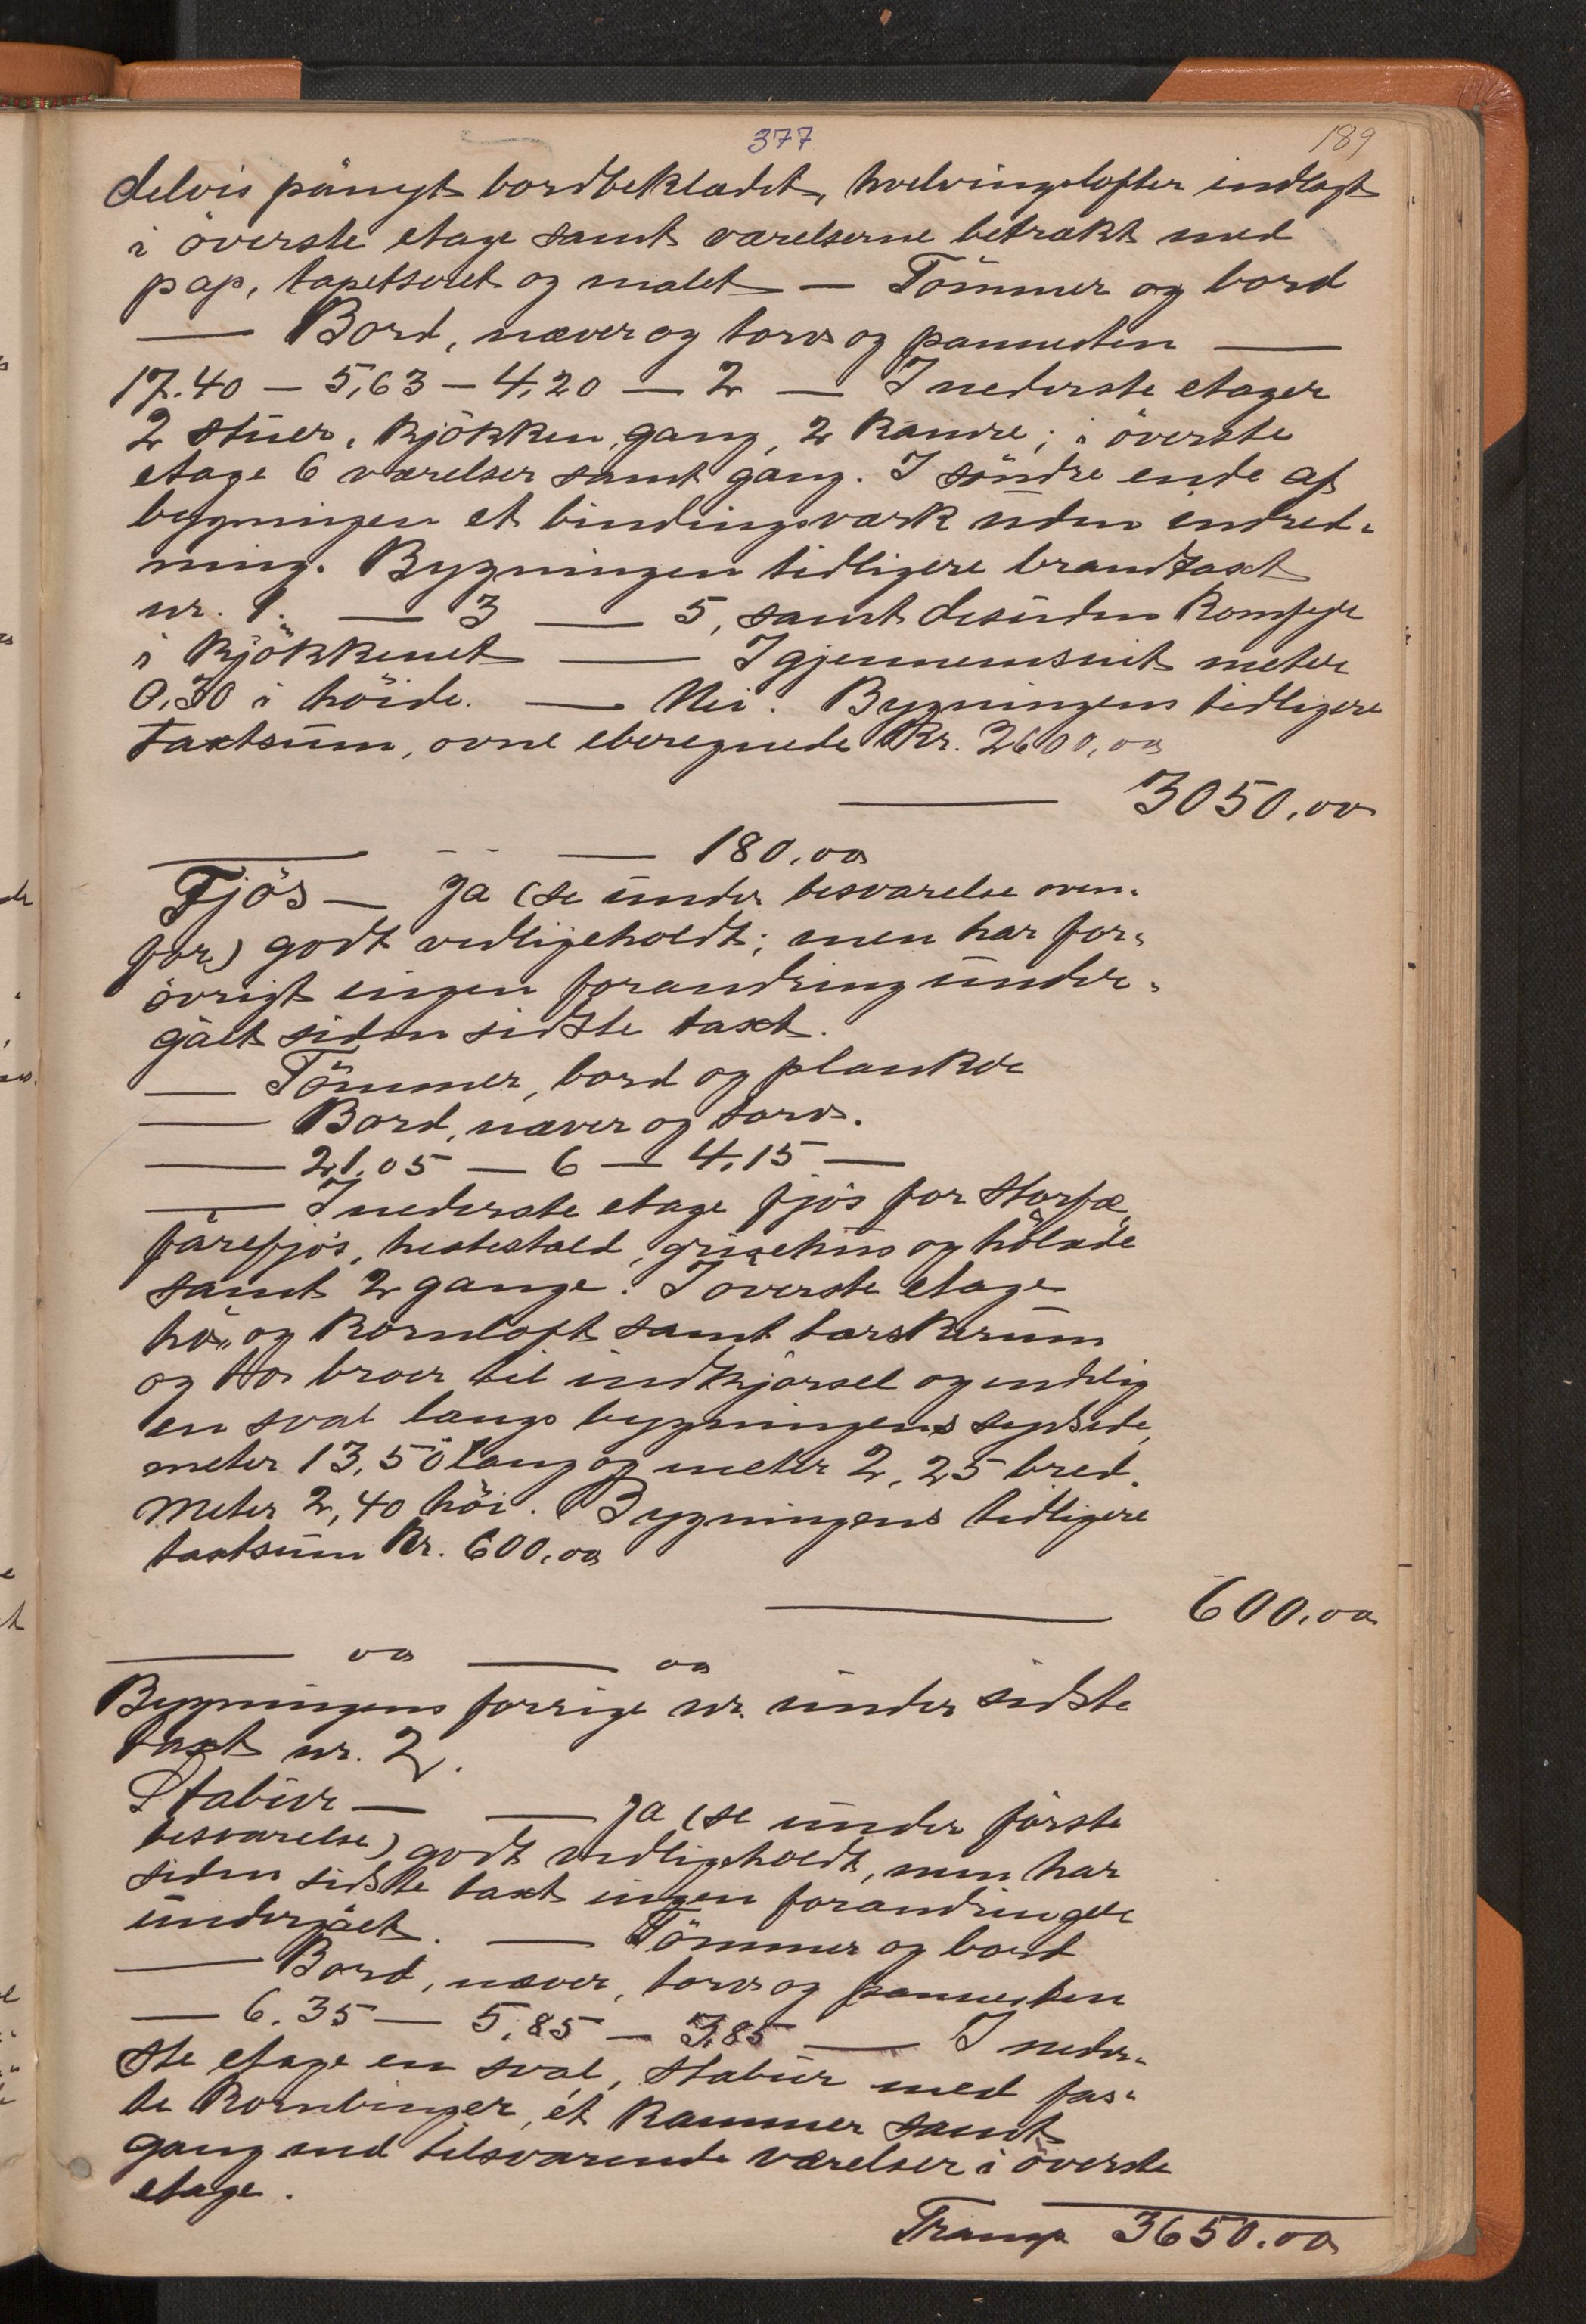 377
189
delvis pånyt bordbeklædt, hvelvingslofter indlagt
i överste etage samt værelserne betrækt med
pap, tapetseret og malet — Tömmer og bord
— Bord, næver og torv og pannesten —
17.40 — 5,63 — 4,20 — 2 — I nederste etager
2 stuer, kjökken, gang, 2 kamre; i överste
etage 6 værelser samt gang. I söndre ende af
bygningen et bindingsværk uden indred-
ning. Bygningen tidligere brandtaxt
nr. 1. — 3 — 5, samt desuden komfyr
i kjökkenet — I gjennemsnit meter
0,30 i höide. — Nei. Bygningens tidligere
taxtsum, ovne eberegnede Kr. 2600,00
— 3050,00
— - - — 180,00
Fjös — Ja (se under besvarelse oven-
for) godt vedligeholdt; men har for-
övrigt ingen forandring under-
gået siden sidste taxt.
— Tömmer, bord og planker
— Bord, næver og torv.
— 21,05 — 6 — 4,15 —
— I nederste etage fjös for storfæ,
fårefjös, hestestald, grisehus og hölade
samt 2 gange. I överste etage
hö- og kornloft samt tærskerum
og to broer til indkjörsel og endelig
en sval langs bygningens sydside,
meter 13,50 lang og meter 2,25 bred,
meter 2,40 höi. Bygningens tidligere
taxtsum Kr. 600,00
— 600,00
— 00 — 00
Bygningens forrige nr. under sidste
taxt nr. 2.
Stabur — — Ja (se under förste
besvarelse) godt vedligeholdt, men har
siden sidste taxt ingen forandringer
undergået. — Tömmer og bord
— Bord, næver, torv og pannesten
— 6.35 — 5,85 — 3,85 — I neder-
ste etage en sval, stabur med fas-
te kornbinger, ét kammer samt
gang med tilsvarende værelser i överste
etage.
Transp. 3650.00